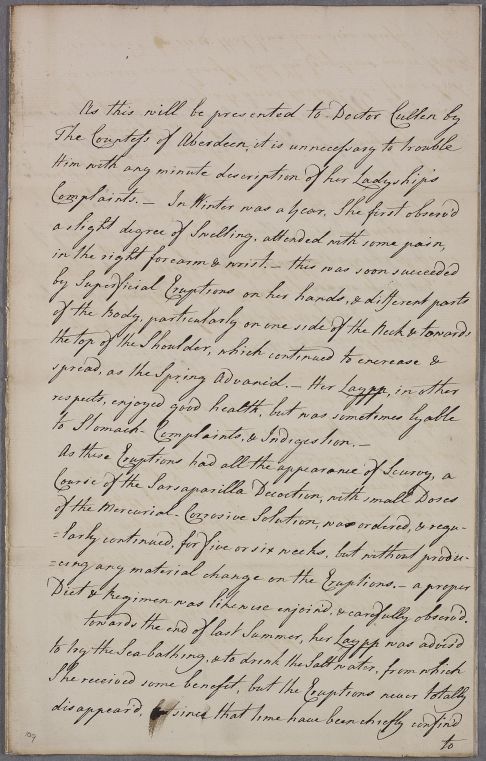 As this will be presented to Doctor Cullen by
The Countess of Aberdeen, it is unnecessary to trouble
Him with any minute description of her Ladyship's
Complaints. — In Winter was a Year, She first observ'd
a slight degree of Swelling, attended with some pain,
in the right forearm & wrist. — this was soon succeeded
by Superficial Eruptions on her hands, & different parts
of the Body, particularly on one side of the Neck & towards
the top of the Shoulder, which continued to encrease &
spread, as the Spring Advanc'd. — Her Laypp, in other
respects, enjoyed good health, but was sometimes lyable
to Stomach Complaints, & Indigestion. —
As these Eruptions had all the appearance of Scurvy, a
Course of the Sarsaparilla Decoction, with small Doses
of the Mercurial Corrosive Solution, was ordered, & regu-
=larly continued, for five or six weeks, but without produ-
=cing any material change on the Eruptions. — a proper
Diet & Regimen was likewise enjoin'd, & carefully observ'd.
towards the end of last Summer, her Laypp was advis'd
to try the Sea-bathing, & to drink the Salt water, from which
She received some benefit, but the Eruptions never totally
disappear'd since that time have been chiefly confin'd
to
109